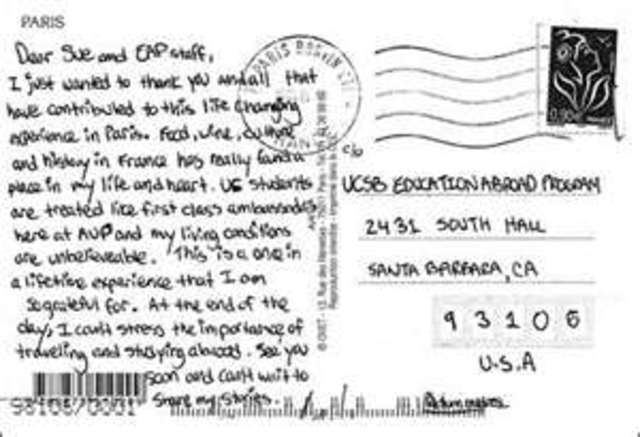 PARIS
Dear Sue and EAP staff,
I just wanted to thank you and all that
have contributed to this life changing
experience in Paris. Food, wine, culture
and history in France has really found a
place in my life and heart. UC students
are treated like first class ambassadors
here at AUP and my living conditions
are unbelieveable. This is a one in
a lifetime experience that I am
so grateful for. At the end of the
day, I can't stress the importance of
traveling and studying abroad. See you
soon and can't wait to
share my stories.
PARIS
c/o
UCSB EDUCATION ABROAD PROGRAM
2431 SOUTH HALL
SANTA BARBARA, CA
93106
U.S.A